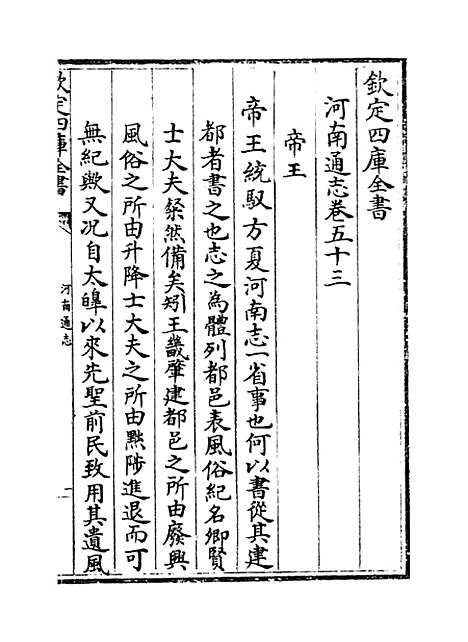 欽定四庫全書
河南通志卷五十三
帝王
帝王統馭方夏河南志一省事也何以書從其建
都者書之也志之為體列都邑表風俗紀名卿賢
士大夫粲然備矣矧王畿肇建都邑之所由廢興
風俗之所由升降士大夫之所由黜陟進退而可
無紀歟又況自太皥以來先聖前民致用其遺風
欽定四庫全書
河南通志
一